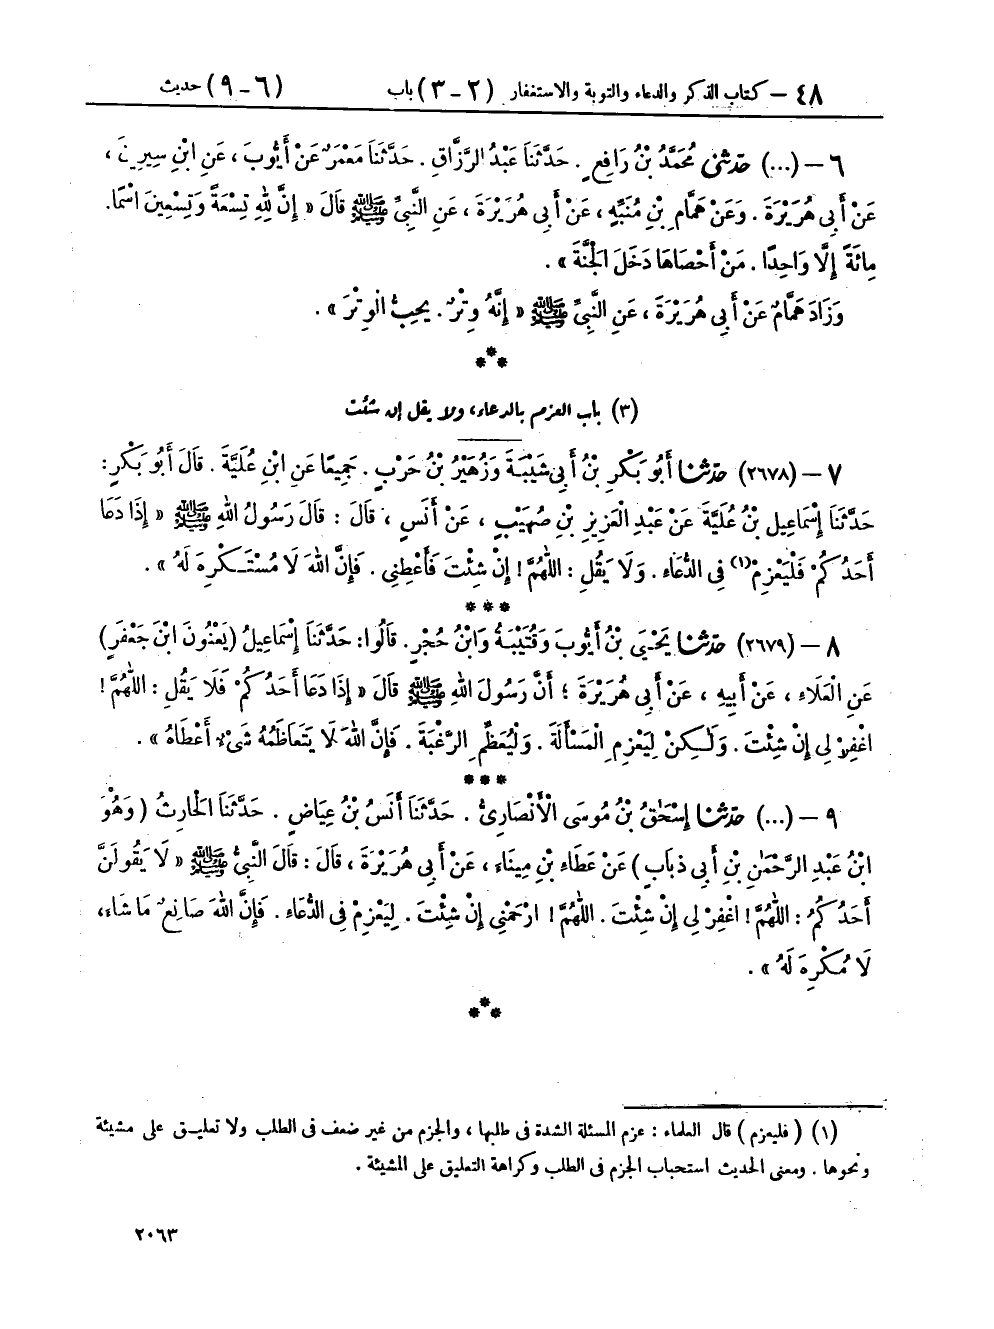 ٤٨ – كتاب الذكر والدعاء والتوبة والاستغفار (٢ – ٣) باب (٦ – ٩) حديث
٦ – (...) حَدَّثَنِي مُحَمَّدُ بْنُ رَافِعٍ . حَدَّثَنَا عَبْدُ الرَّزَّاقِ . حَدَّثَنَا مَعْمَرٌ عَنْ أَيُّوبَ ، عَنِ ابْنِ سِيرِينَ ،
عَنْ أَبِي هُرَيْرَةَ . وَعَنْ هَمَّامِ بْنِ مُنَبِّهٍ ، عَنْ أَبِي هُرَيْرَةَ ، عَنِ النَّبِيِّ ﷺ قَالَ « إِنَّ لِلّٰهِ تِسْعَةً وَتِسْعِينَ اسْمًا.
مِائَةً إِلَّا وَاحِدًا . مَنْ أَحْصَاهَا دَخَلَ الْجَنَّةَ » .
وَزَادَ هَمَّامٌ عَنْ أَبِي هُرَيْرَةَ ، عَنِ النَّبِيِّ ﷺ « إِنَّهُ وِتْرٌ . يُحِبُّ الْوِتْرَ » .
***
(٣) باب العزم بالدعاء، ولا يقل إن شئت
٧ – (٢٦٧٨) حَدَّثَنَا أَبُو بَكْرِ بْنُ أَبِي شَيْبَةَ وَزُهَيْرُ بْنُ حَرْبٍ . جَمِيعًا عَنِ ابْنِ عُلَيَّةَ . قَالَ أَبُو بَكْرٍ :
حَدَّثَنَا إِسْمَاعِيل بْنُ عُلَيَّةَ عَنْ عَبْدِ الْعَزِيزِ بْنِ صُهَيْبٍ ، عَنْ أَنَسٍ ، قَالَ : قَالَ رَسُولُ اللهِ ﷺ « إِذَا دَعَا
أَحَدُكُمْ فَلْيَعْزِمْ(١) فِي الدُّعَاءِ . وَلَا يَقُلِ : اللّٰهُمَّ ! إِنْ شِئْتَ فَأَعْطِنِي . فَإِنَّ اللهَ لَا مُسْتَكْرِهَ لَهُ » .
***
٨ – (٢٦٧٩) حَدَّثَنَا يَحْيَىٰ بْنُ أَيُّوبَ وَقُتَيْبَةُ وَابْنُ حُجْرٍ . قَالُوا: حَدَّثَنَا إِسْمَاعِيلُ (يَعْنُونَ ابْنَ جَعْفَرٍ)
عَنِ الْعَلَاءِ ، عَنْ أَبِيهِ ، عَنْ أَبِي هُرَيْرَةَ ؛ أَنَّ رَسُولَ اللهِ ﷺ قَالَ « إِذَا دَعَا أَحَدُكُمْ فَلَا يَقُلِ : اللّٰهُمَّ !
اغْفِرْ لِي إِنْ شِئْتَ . وَلٰكِنْ لِيَعْزِمِ الْمَسْأَلَةَ . وَلْيُعَظِّمِ الرَّغْبَةَ . فَإِنَّ اللهَ لَا يَتَعَاظَمُهُ شَيْءٌ أَعْطَاهُ » .
***
٩ – (...) حَدَّثَنَا إِسْحَاقُ بْنُ مُوسَى الْأَنْصَارِيُّ . حَدَّثَنَا أَنَسُ بْنُ عِيَاضٍ . حَدَّثَنَا الْحَارِثُ ( وَهُوَ
ابْنُ عَبْدِ الرَّحْمٰنِ بْنِ أَبِي ذُبَابٍ ) عَنْ عَطَاءِ بْنِ مِينَاءَ ، عَنْ أَبِي هُرَيْرَةَ ، قَالَ : قَالَ النَّبِيُّ ﷺ « لَا يَقُولَنَّ
أَحَدُكُمُ : اللّٰهُمَّ ! اغْفِرْ لِي إِنْ شِئْتَ . اللّٰهُمَّ ! ارْحَمْنِي إِنْ شِئْتَ . لِيَعْزِمْ فِي الدُّعَاءِ . فَإِنَّ اللهَ صَانِعٌ مَا شَاءَ،
لَا مُكْرِهَ لَهُ » .
***
(١) ( فليعزم ) قال العلماء : عزم المسئلة الشدة فى طلبها ، والجزم من غير ضعف فى الطلب ولا تعليق على مشيئة
ونحوها . ومعنى الحديث استحباب الجزم فى الطلب وكراهة التعليق على المشيئة .
٢٠٦٣